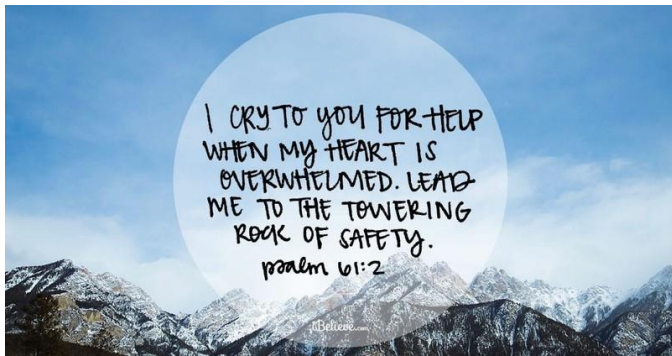 I CRY TO YOU FOR HELP
WHEN MY HEART IS
OVERWHELMED. LEAD
ME TO THE TOWERING
ROCK OF SAFETY.
psalm 61:2
iBelieve.com